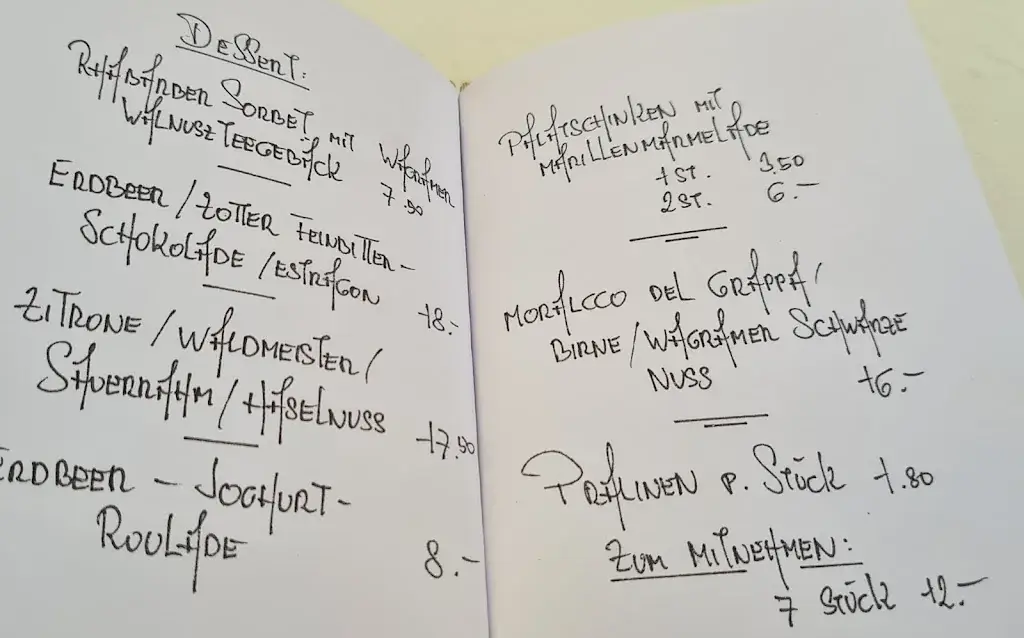 DESSERT:
RHABARBER SORBET MIT WAGRAMER
WALNUSZ TEEGEBÄCK 7.90
ERDBEER / ZOTTER FEINBITTER-
SCHOKOLADE / ESTRAGON 18.-
ZITRONE / WALDMEISTER /
SAUERRAHM / HASELNUSS 17.50
ERDBEER - JOGHURT-
ROULADE 8.-
PALATSCHINKEN MIT
MARILLENMARMELADE
1 ST. 3.50
2 ST. 6.-
MORALCCO DEL GRAPPA /
BIRNE / WAGRAMER SCHWARZE
NUSS 16.-
PRALINEN P. STÜCK 1.80
ZUM MITNEHMEN:
7 STÜCK 12.-